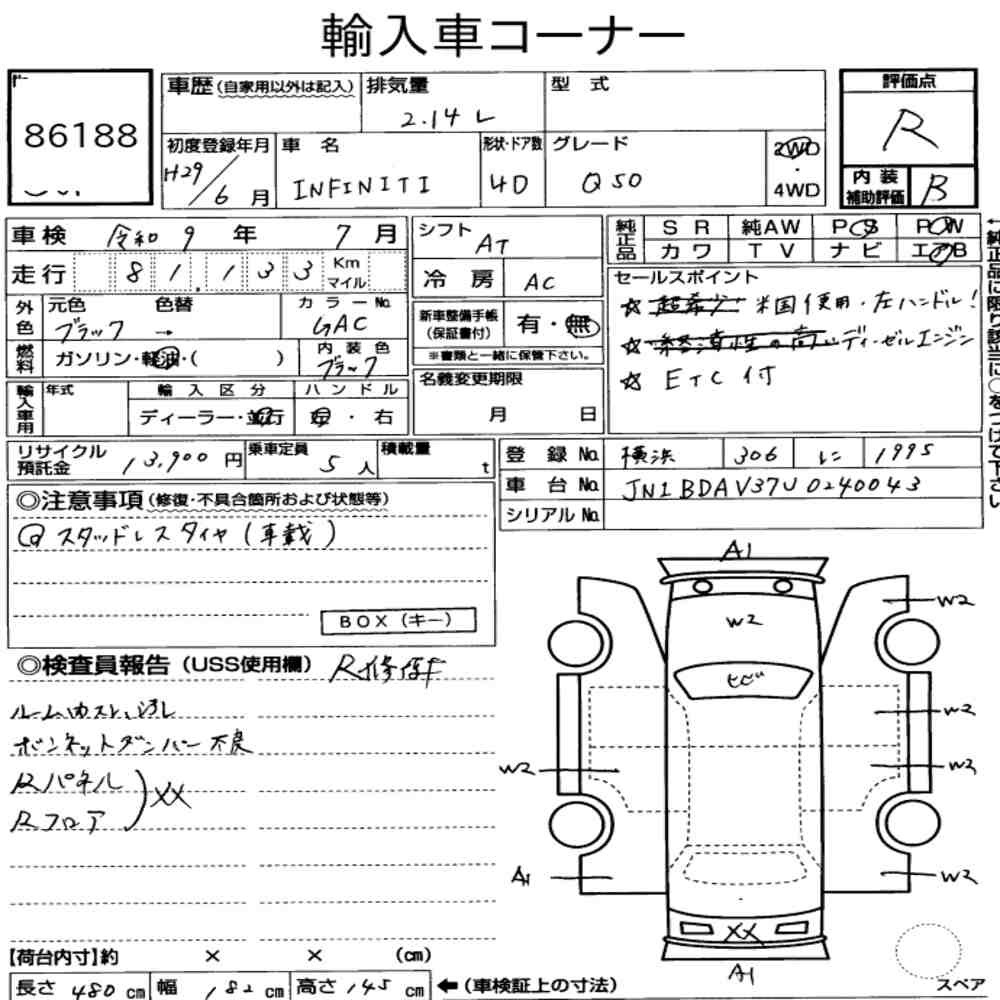 輸入車コーナー
86188
車歴(自家用以外は記入) 排気量 2.14 L 型 式
初度登録年月 H29/6月 車 名 INFINITI 形状・ドア数 4D グレード Q50 2WD・4WD
評価点 R
内装補助評価 B
車検 令和 9 年 7 月
走行 81,133 Km マイル
外色 元色 ブラック 色替 → カラーNo. GAC
燃料 ガソリン・軽油・( ) 内装色 ブラック
輸入車用 年式 輸入区分 ディーラー・並行 ハンドル 左・右
シフト AT
冷 房 AC
新車整備手帳(保証書付) 有・無
※書類と一緒に保管下さい。
名義変更期限 月 日
純正品 SR 純AW PS PW
カワ TV ナビ エアB
セールスポイント
☆ 超希少 米国使用・左ハンドル!
☆ 経済性の高いディーゼルエンジン
☆ ETC付
←純正品に限り該当に○をつけて下さい
リサイクル預託金 13,900 円 乗車定員 5 人 積載量 t
登 録 No. 横浜 306 に 1995
車 台 No. JN1BDAV37U0240043
シリアル No.
◎注意事項(修復・不具合箇所および状態等)
@ スタッドレスタイヤ(車載)
BOX(キー)
◎検査員報告(USS使用欄) R修復有
ルーム内スレ、汚レ
ボンネットダンパー不良
Rパネル
Rフロア ) XX
A1
W2
W2
ヒビ
W2
W2
W2
A1
W2
XX
A1
スペア
【荷台内寸】約 × × (cm)
長さ 480 cm 幅 182 cm 高さ 145 cm ←(車検証上の寸法)